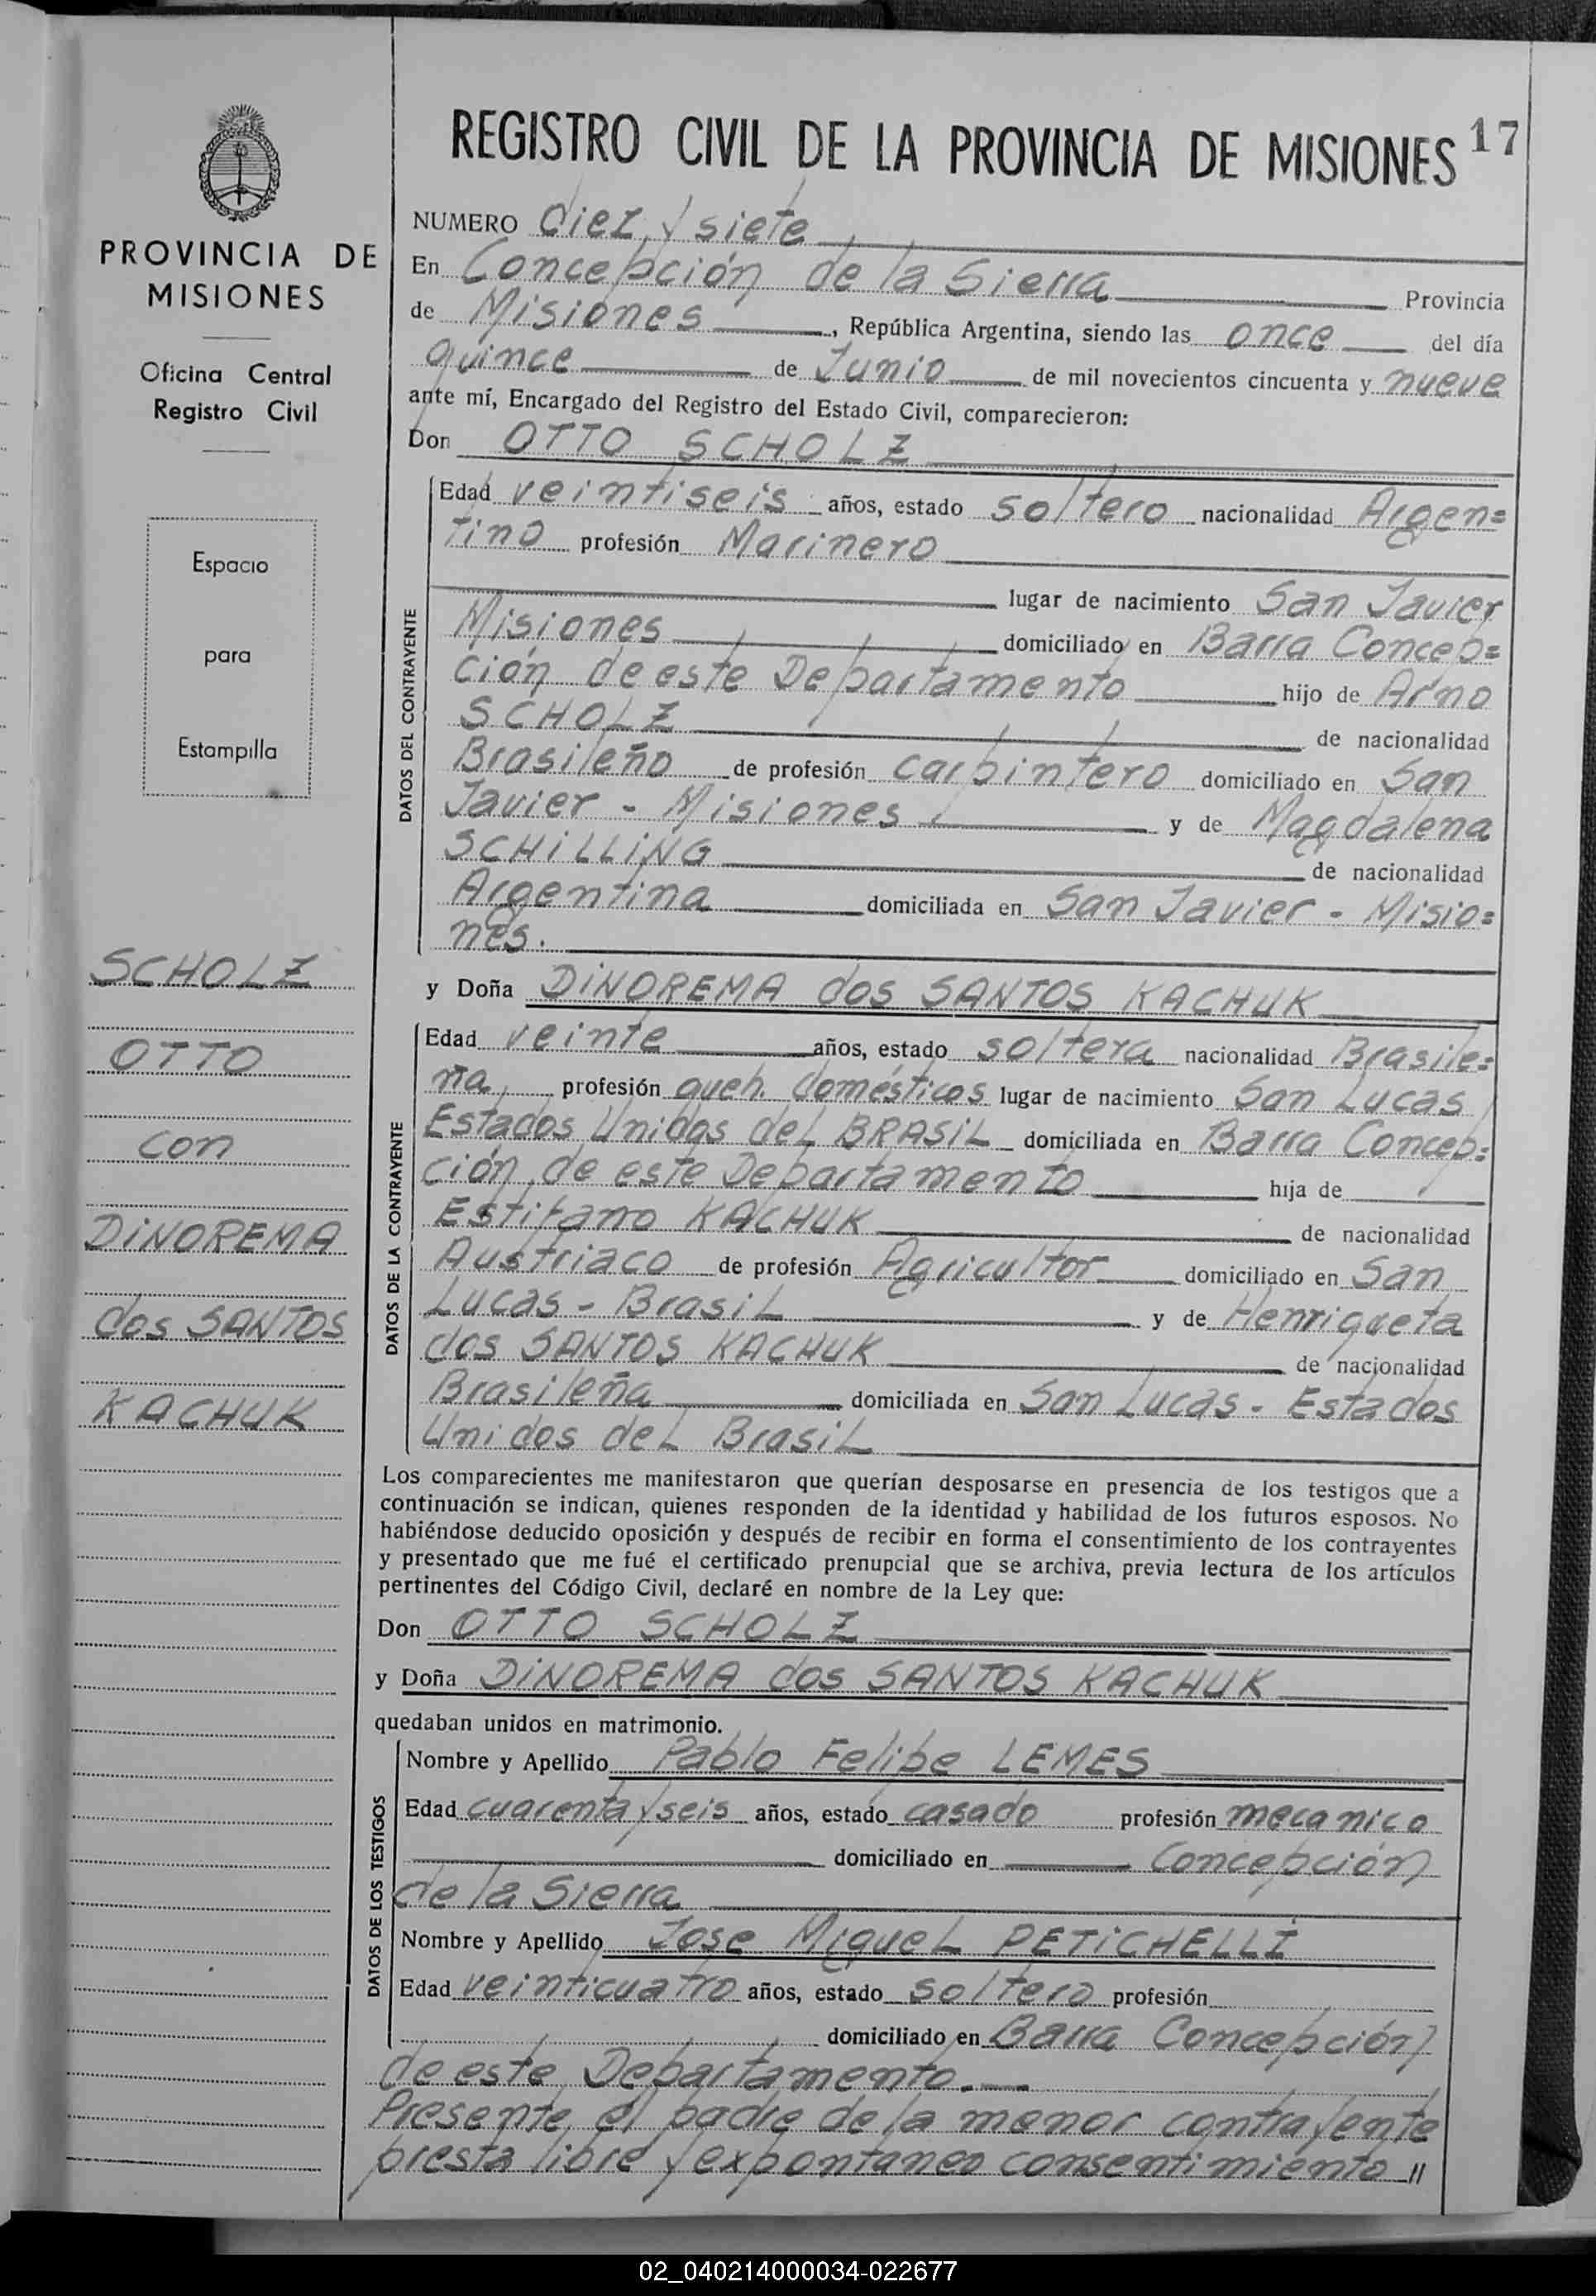 REGISTRO CIVIL DE LA PROVINCIA DE MISIONES 17
PROVINCIA DE
MISIONES
Oficina Central
Registro Civil
Espacio
para
Estampilla
SCHOLZ
OTTO
con
DiNOREMA
dos SANTOS
KACHUK
NUMERO diez y siete
En Concepción de la Sierra Provincia
de Misiones, República Argentina, siendo las once del día
quince de Junio de mil novecientos cincuenta y nueve
ante mí, Encargado del Registro del Estado Civil, comparecieron:
Don OTTO SCHOLZ
DATOS DEL CONTRAYENTE
Edad veintiseis años, estado soltero nacionalidad Argen=
tino profesión Marinero
lugar de nacimiento San Javier
Misiones domiciliado en Barra Concep=
ción de este Departamento hijo de Arno
SCHOLZ de nacionalidad
Brasileño de profesión carpintero domiciliado en San
Javier - Misiones y de Magdalena
SCHiLLiNG de nacionalidad
Argentina domiciliada en San Javier - Misio=
nes.
y Doña DiNOREMA dos SANTOS KACHUK
DATOS DE LA CONTRAYENTE
Edad veinte años, estado soltera nacionalidad Brasile=
ña, profesión queh. domésticos lugar de nacimiento San Lucas
Estados Unidos deL BRASiL domiciliada en Barra Concep=
ción de este Departamento hija de
Estifano KACHUK de nacionalidad
Austriaco de profesión Agricultor domiciliado en San
Lucas - BrasiL y de Henriqueta
dos SANTOS KACHUK de nacionalidad
Brasileña domiciliada en San Lucas - Estados
Unidos deL BrasiL
Los comparecientes me manifestaron que querían desposarse en presencia de los testigos que a
continuación se indican, quienes responden de la identidad y habilidad de los futuros esposos. No
habiéndose deducido oposición y después de recibir en forma el consentimiento de los contrayentes
y presentado que me fué el certificado prenupcial que se archiva, previa lectura de los artículos
pertinentes del Código Civil, declaré en nombre de la Ley que:
Don OTTO SCHOLZ
y Doña DiNOREMA dos SANTOS KACHUK
quedaban unidos en matrimonio.
DATOS DE LOS TESTIGOS
Nombre y Apellido Pablo Felipe LEMES
Edad cuarenta y seis años, estado casado profesión mecanico
domiciliado en Concepción
de la Sierra
Nombre y Apellido Jose MigueL PETiCHELLI
Edad veinticuatro años, estado soltero profesión
domiciliado en Barra Concepción
de este Departamento.—
Presente el padre de la menor contrayente
presta libre y expontaneo consentimiento "
02_040214000034-022677